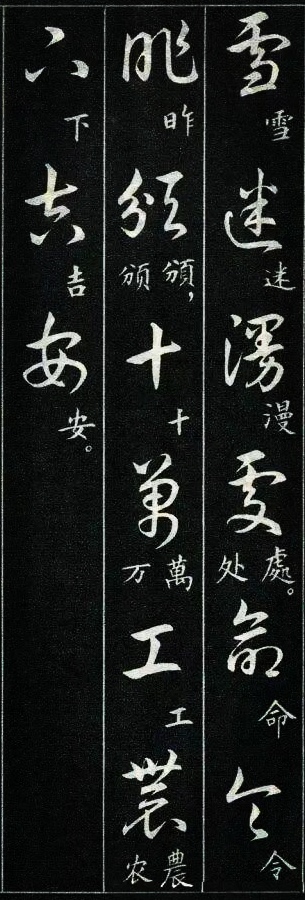 雪 雪
迷 迷
漫 漫
處 處。处
命 命
令 令
昨 昨
頒 頒,颁
十 十
萬 萬万
工 工
農 農农
下 下
吉 吉
安 安。